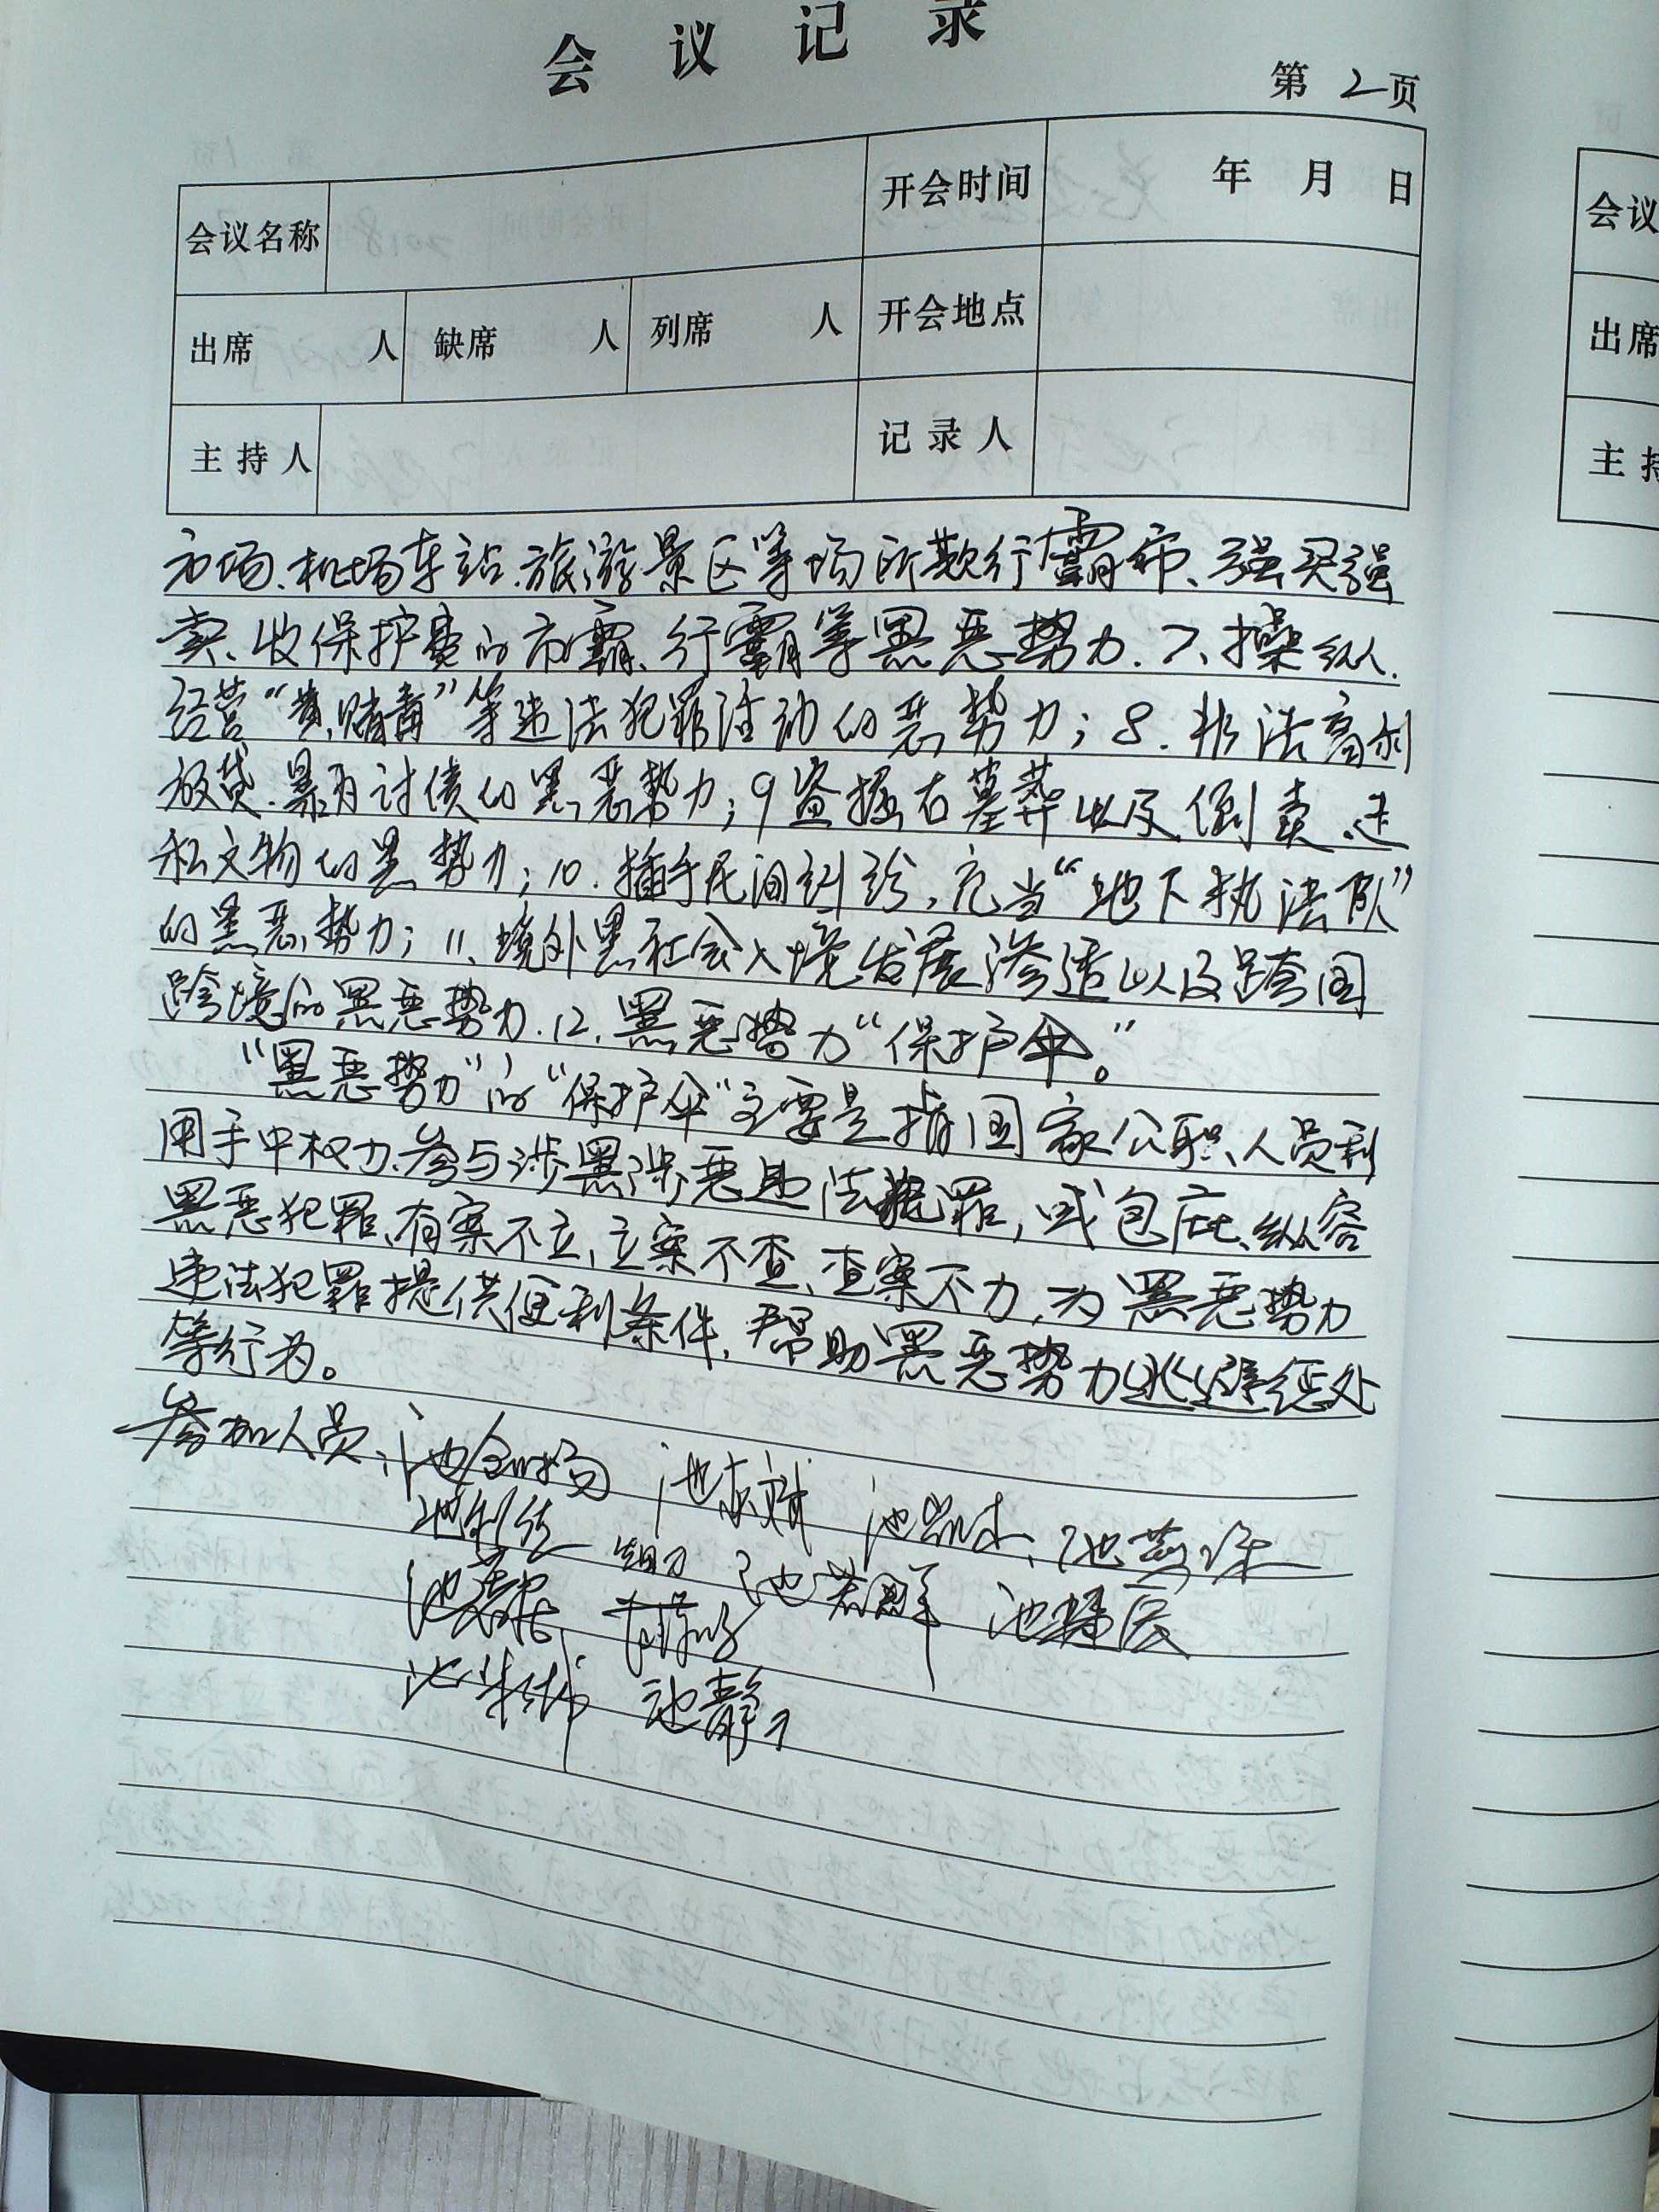 会议记录
第2页
会议名称 开会时间 年 月 日
出席 人 缺席 人 列席 人 开会地点
主持人 记录人
市场、机场车站、旅游景区等场所欺行霸市、强买强
卖、收保护费的市霸、行霸等黑恶势力.7、操纵.
经营“黄、赌毒”等违法犯罪活动的恶势力；8.非法高利
放贷、暴力讨债的黑恶势力；9盗掘古墓葬以及倒卖、走
私文物的黑势力；10.插手民间纠纷，充当“地下执法队”
的黑恶势力；11、境外黑社会入境发展渗透以及跨国
跨境的黑恶势力.12.黑恶势力“保护伞。”
“黑恶势力”的“保护伞”主要是指国家公职人员利
用手中权力、参与涉黑涉恶违法犯罪，或包庇、纵容
黑恶犯罪、有案不立、立案不查、查案不力，为黑恶势力
违法犯罪提供便利条件，帮助黑恶势力逃避惩处
等行为。
参加人员：池
池静
会议
出席
主持